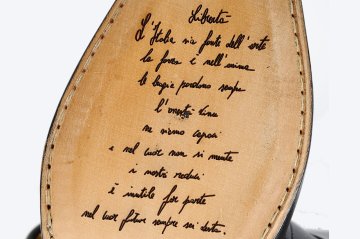 Libertà
L'Italia sia fonte dell'arte
la forza è nell'anima
le bugie perdono sempre
l'onestà
ne siamo capaci
e nel cuor non si mente
i nostri
è inutile far parte
nel cuor futuro sempre si desta.